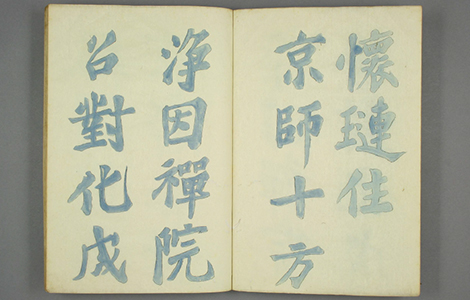 懷璉住
京師十方
淨因禪院
召對化成